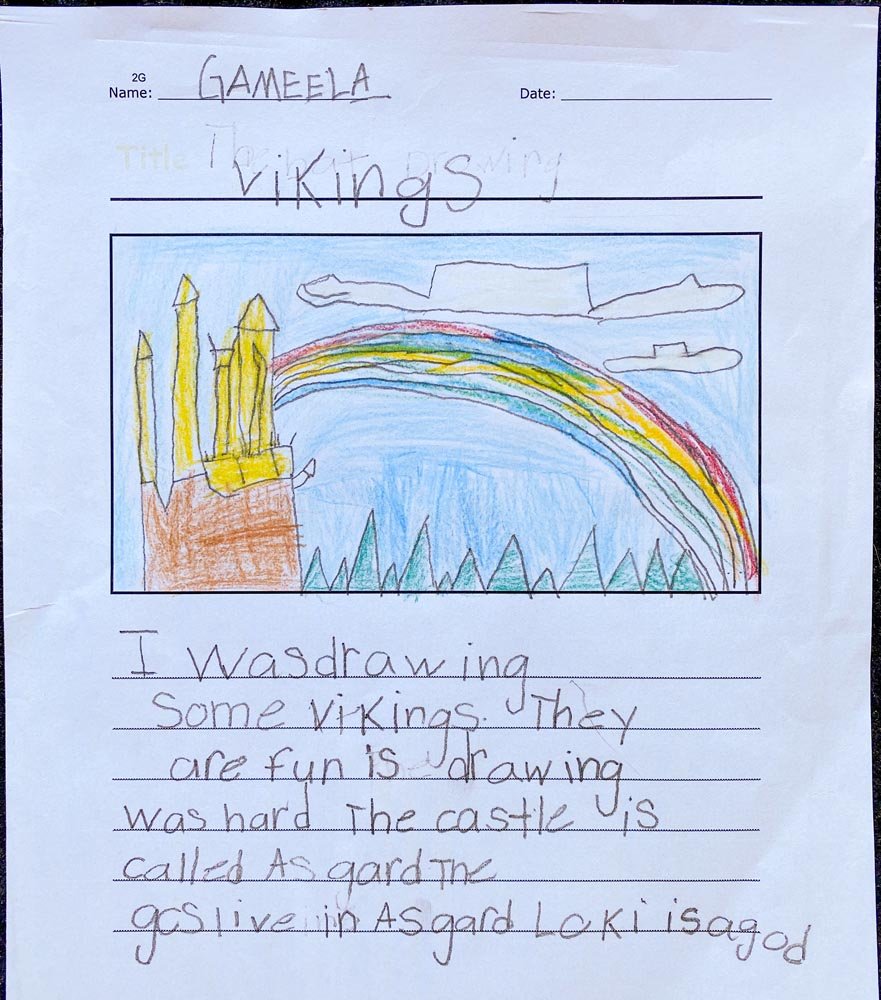 2G
Name: GAMEELA Date:
Title The Drawing
vikings
I was drawing
Some vikings. They
are fun is drawing
was hard The castle is
called Asgard The
gos live in Asgard Loki is a god